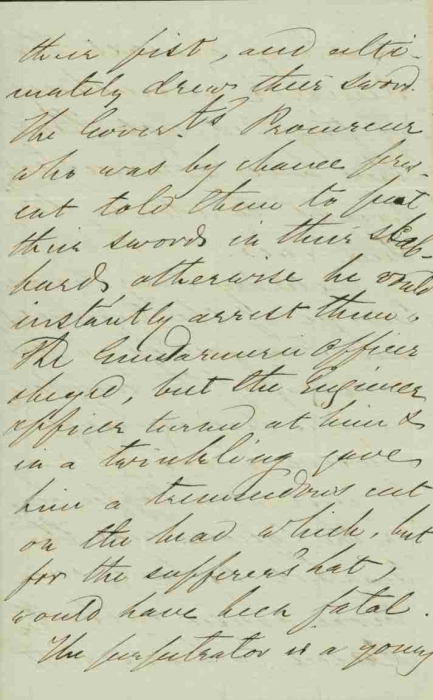 their fist, and ulti-
mately drew their sword.
The Govert.'s Procureur
who was by chance pres-
ent told them to put
their swords in their scab-
bards otherwise he would
instantly arrest them.
The Gendarmerie officer
obeyed, but the Engineer
officer turned at him &
in a twinkling gave
him a tremendous cut
on the head which, but
for the sufferer's hat,
would have been fatal.
The perpetrator is a young